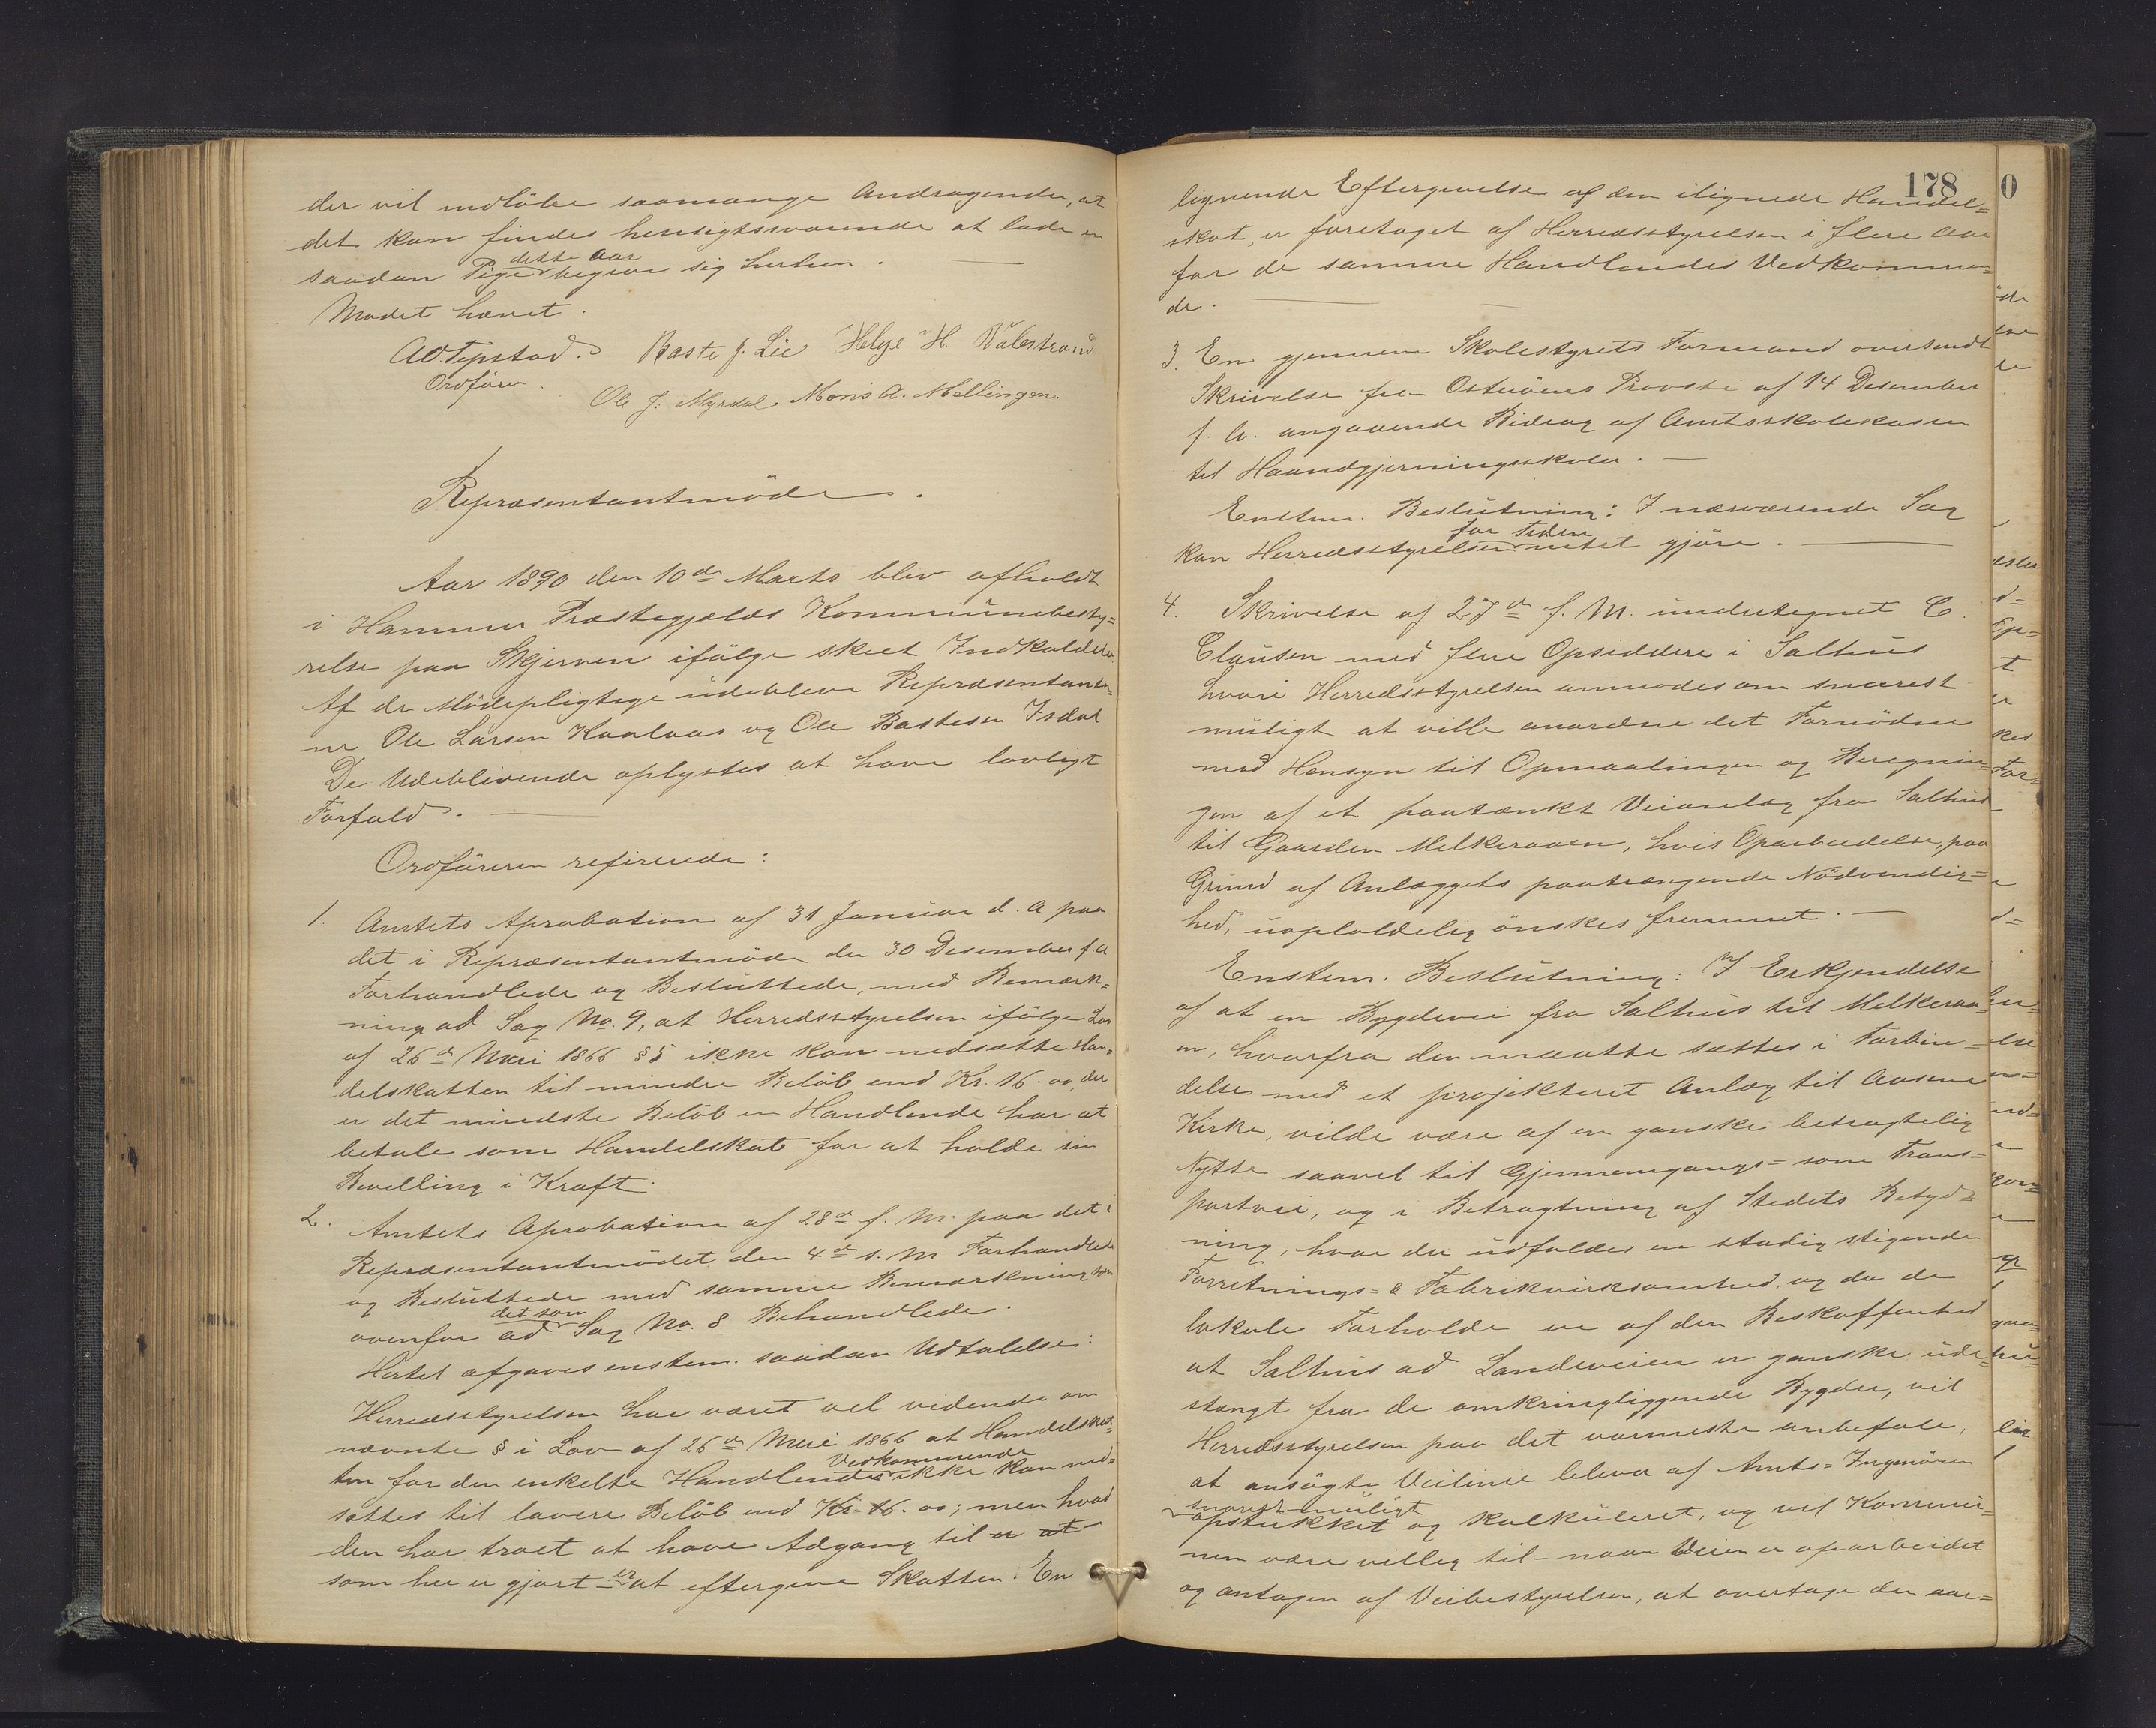 der vil indløbe saamange Andragender, at
det kan findes hensigtssvarende at lade en
saadan Pige dette Aar begive sig hertien.
Mødet hævet.
Ad. Tepstad. Baste J. Lie Helge H. Rabestrand
Ordfører.
Ole J. Myrdal. Mons A. Mellingen.
Repræsentantmøde.
Aar 1890 den 10de Marts blev afholdt
i Hammer Præstegjelds Kommunebesty=
relse paa Skjerven ifølge skeet Indkaldelse.
Af de Mødepligtige udebleve Repræsentanter=
ne Ole Larsen Kaalaas og Ole Bastesen Isdal
De Udeblivende oplystes at have lovligt
Forfald.
Ordføreren refirerede:
1. Amtets Aprobation af 31 Januar d. A paa
det i Repræsentantmøde den 30 Desember f. A
Forhandlede og Besluttede, med Bemærk=
ning ad Sag No. 9, at Herredsstyrelsen ifølge Lov
af 26de Mai 1866 § 5 ikke kan nedsætte Han=
delskatten til mindre Beløb end Kr. 16.00, der
er det mindste Beløb en Handlende har at
betale som Handelskat for at holde sin
Bevilling i Kraft.
2. Amtets Aprobation af 28de f. M. paa det i
Repræsentantmødet den 4de s. M Forhandlede
og Besluttede med samme Bemærkning som
ovenfor ad det som Sag No. 8 Behandlede.
Hertil afgaves enstem. saadan Udtalelse:
Herredsstyrelsen har været vel vidende om
nævnte § i Lov af 26de Mai 1866 at Handelsskat=
ten for den enkelte Handlendes Vedkommende ikke kan ned=
sættes til lavere Beløb end Kr. 16.00; men hvad
den har troet at have Adgang til er at
som her er gjort er at eftergive Skatten. En
178
lignende Eftergivelse af den ilignede Handel=
skat, er foretaget af Herredsstyrelsen i flere Aar
for de samme Handlendes Vedkommen=
de.
3. En gjennem Skolestyrets Formand oversendt
Skrivelse fra Osterøens Provsti af 14 Desember
f. A. angaaende Bidrag af Amtsskolekassen
til Haandgjerningsskoler.
Enstem. Beslutning: I nærværende Sag
kan Herredsstyrelsen for Tiden intet gjøre.
4. Skrivelse af 27de f. M. undertegnet C.
Clausen med flere Opsiddere i Salhus
hvori Herredsstyrelsen anmodes om snarest
muligt at ville anordne det Fornødne
med Hensyn til Opmaalingen og Beregnin=
gen af et paatænkt Veianlæg fra Salhus
til Gaarden Melkeraaen, hvis Oparbeidelse, paa
Grund af Anlæggets paatrængende Nødvendig=
hed, uopholdelig ønskes fremmet.
Enstem. Beslutning: I Erkjendelse
af at en Bygdevei fra Salhus til Melkeraa=
en, hvorfra den maatte sættes i Forbin=
delse med et projekteret Anlæg til Aasene
Kirke, vilde være af en ganske betragtelig
Nytte saavel til Gjennemgangs= som Trans=
portvei, og i Betragtning af Stedets Betyd=
ning, hvor der udfoldes en stadig stigende
Forretnings= & Fabrikvirksomhed, og da de
lokale Forholde ere af den Beskaffenhed
at Salhus ad Landeveien er ganske ude=
stængt fra de omkringliggende Bygder, vil
Herredsstyrelsen paa det varmeste anbefale,
at ansøgte Veilinie bliver af Amts=Ingeniøren
snarest muligt
opstukket og kalkuleret, og vil Kommu=
nen være villig til – naar Veien er oparbeidet
og antagen af Veibestyrelsen, at overtage den aar=